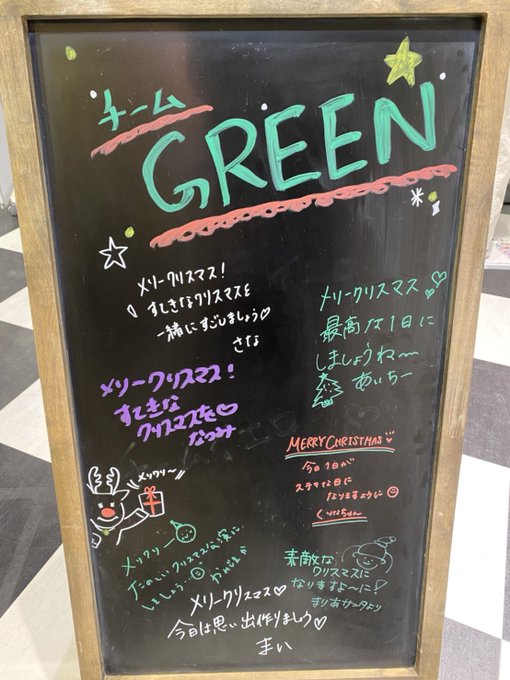 チーム
GREEN
メリークリスマス！
すてきなクリスマスを
一緒にすごしましょう♡
さな
メリークリスマス♡
最高な1日に
しましょうね〜
あいちー
メリークリスマス！
すてきな
クリスマスを♡
なつみ
MERRY CHRISTMAS♡
今日1日が
ステキな日に
なりますように☺
くりなちゃん
メリクリ〜
メリクリ
たのしいクリスマス公演に
しましょう
素敵な
クリスマスに
なりますよ〜に！
まりあサータより
メリークリスマス♡
今日は思い出作りましょう♡
まい